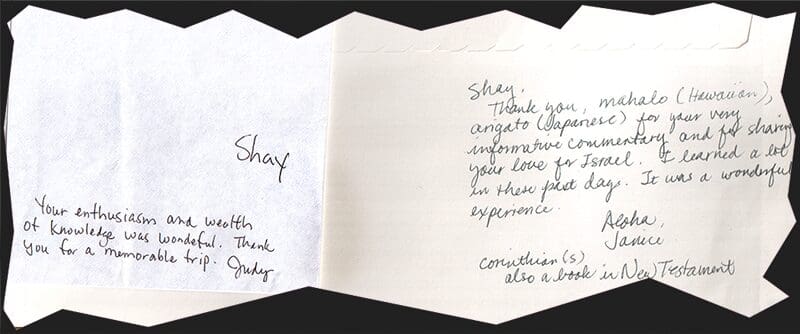 Shay
Your enthusiasm and wealth
of knowledge was wondeful. Thank
you for a memorable trip. Judy
Shay,
Thank you, mahalo (Hawaiian),
arigato (Japanese) for your very
informative commentary and for sharing
your love for Israel. I learned a lot
in these past days. It was a wonderful
experience.
Aloha,
Janice
corinthian(s)
also a book in New Testament